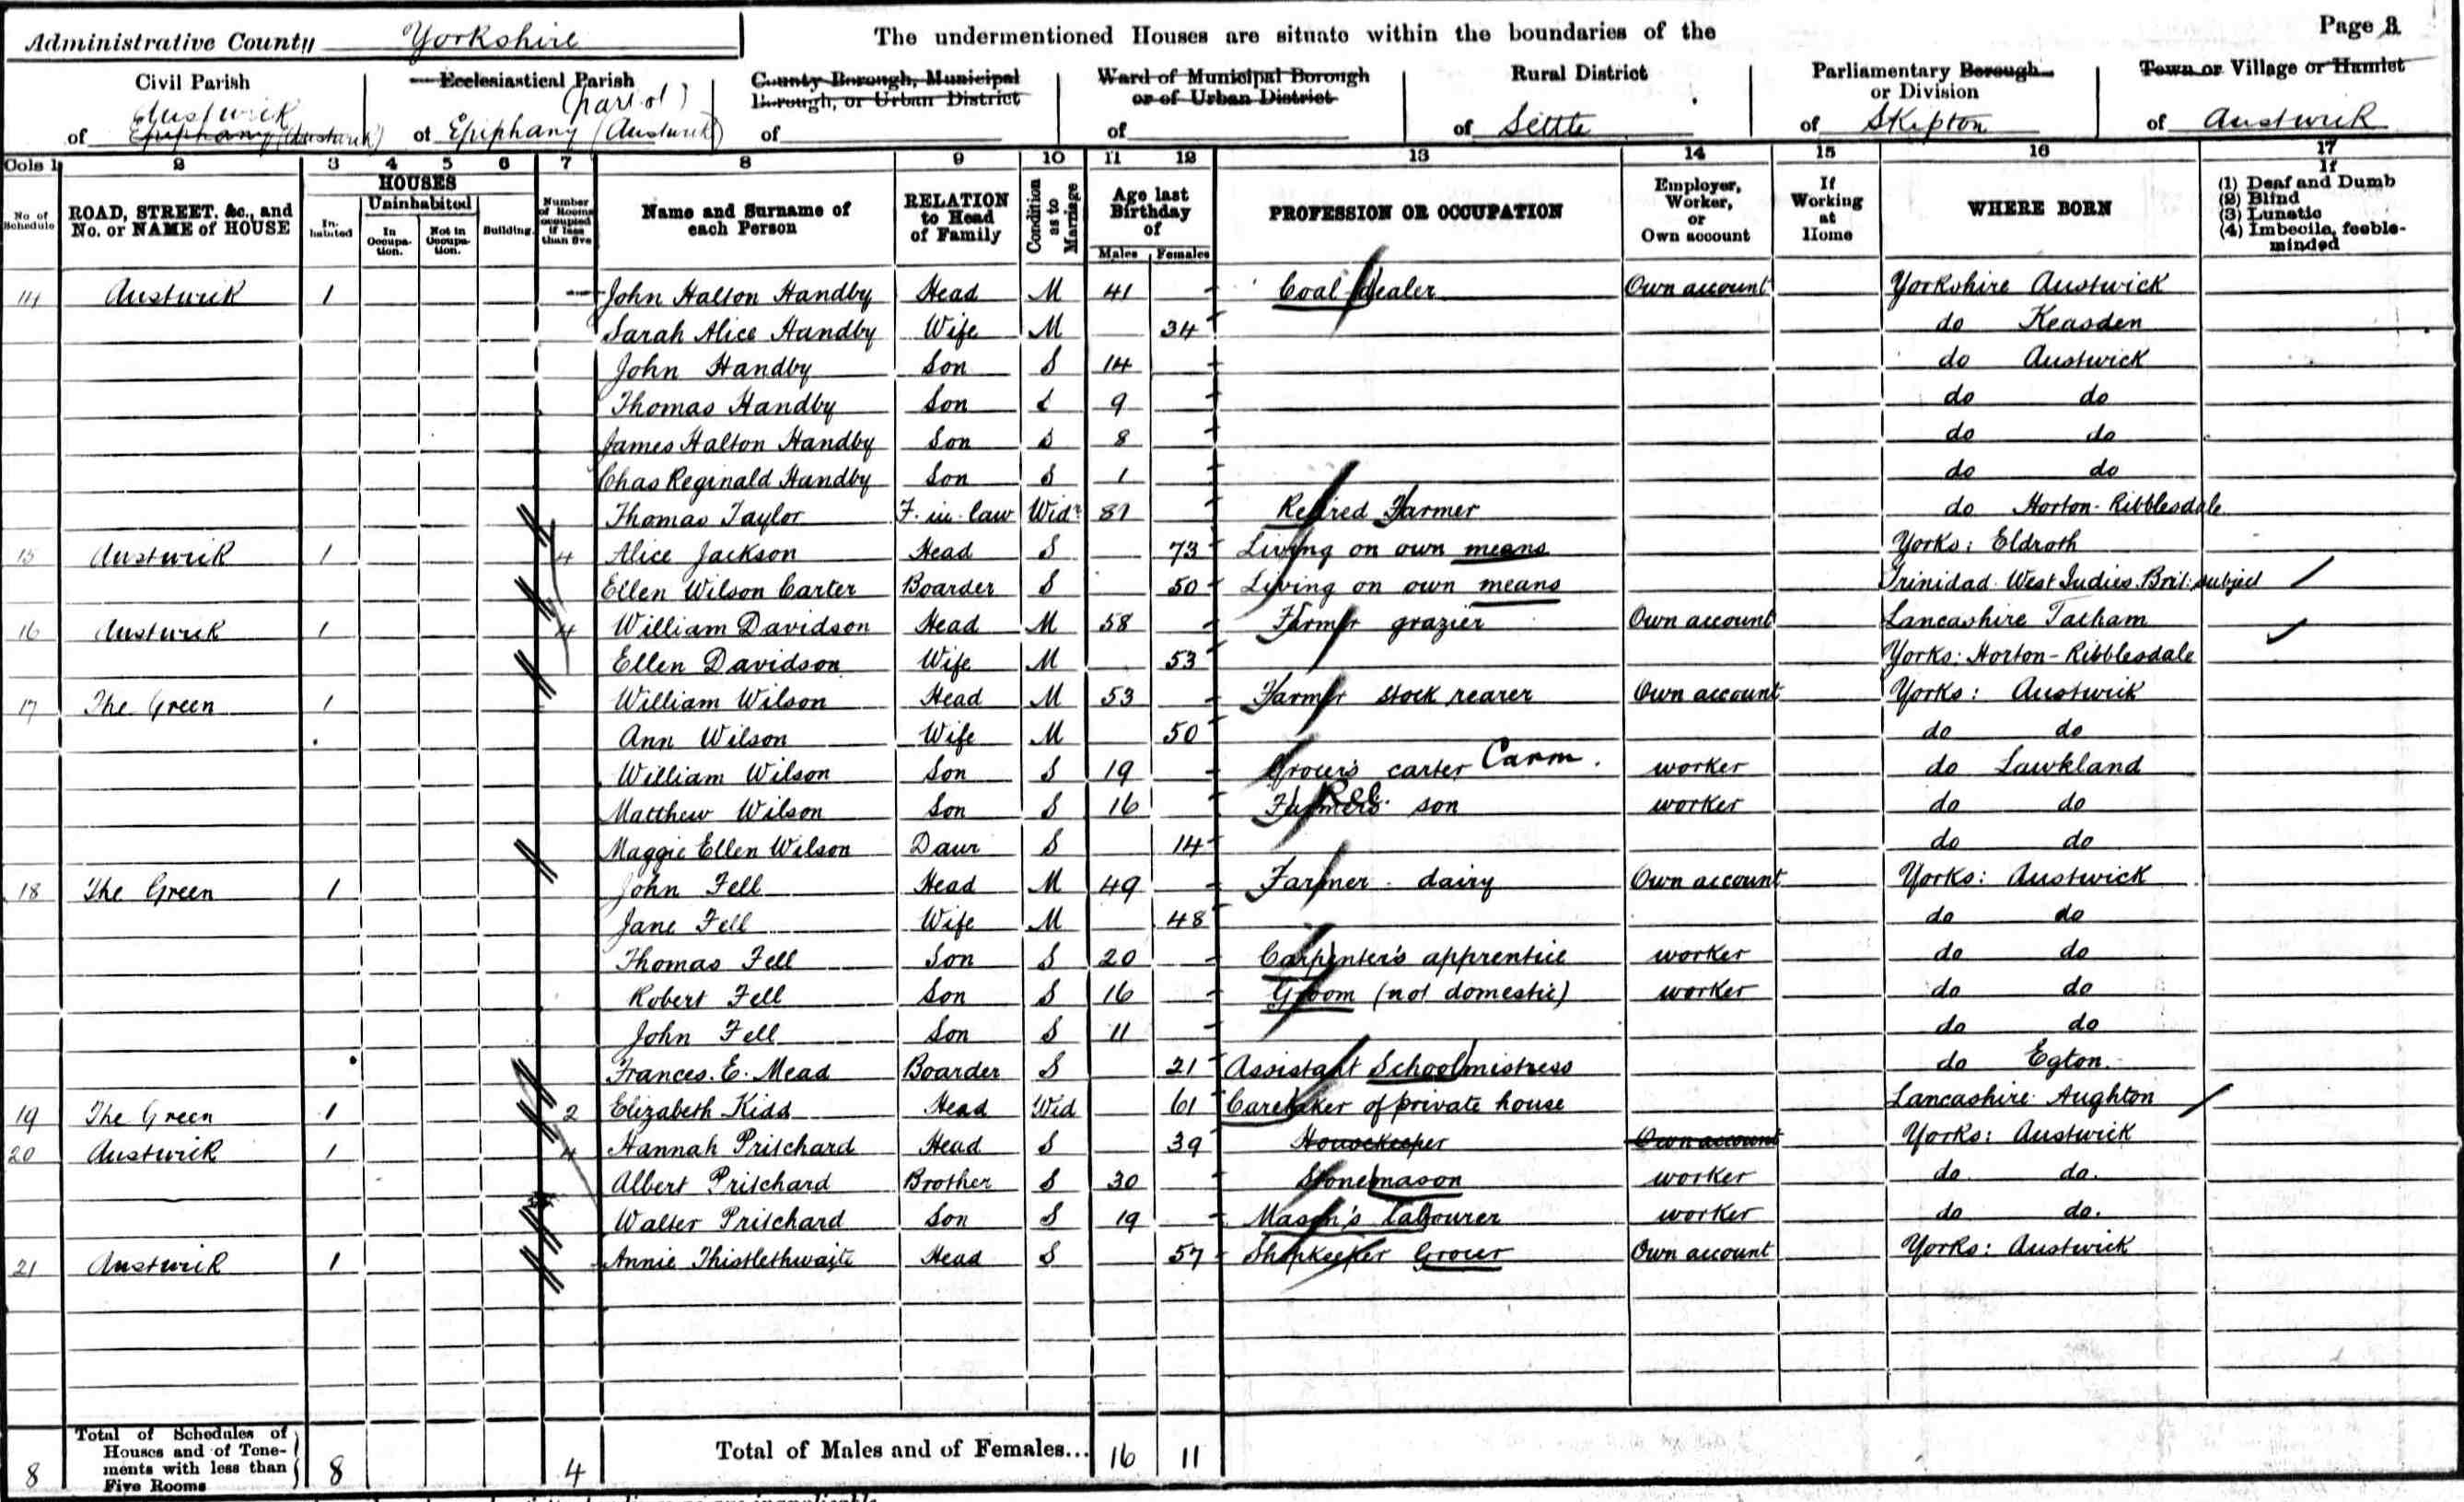 Administrative County Yorkshire The undermentioned Houses are situate within the boundaries of the Page 3
Civil Parish Ecclesiastical Parish County Borough, Municipal Borough, or Urban District Ward of Municipal Borough or of Urban District Rural District Parliamentary Borough or Division Town or Village or Hamlet
of Austwick Epiphany (Austwick) of (part of) Epiphany (Austwick) of of of Settle of Skipton of Austwick
Cols 1 2 3 4 5 6 7 8 9 10 11 12 13 14 15 16 17
No. of Schedule ROAD, STREET, &c., and No. or NAME of HOUSE HOUSES Inhabited Uninhabited In Occupation. Not in Occupation. Building. Number of Rooms occupied if less than five Name and Surname of each Person RELATION to Head of Family Condition as to Marriage Age last Birthday of Males Females PROFESSION OR OCCUPATION Employer, Worker, or Own account If Working at Home WHERE BORN If (1) Deaf and Dumb (2) Blind (3) Lunatic (4) Imbecile, feeble-minded
14 Austwick 1 John Halton Handby Head M 41 Coal Dealer Own account Yorkshire Austwick
Sarah Alice Handby Wife M 34 do Keasden
John Handby Son S 14 do Austwick
Thomas Handby Son S 9 do do
James Halton Handby Son S 8 do do
Chas Reginald Handby Son S 1 do do
Thomas Taylor F. in law Widr 81 Retired Farmer do Horton-Ribblesdale
15 Austwick 1 4 Alice Jackson Head S 73 Living on own means Yorks: Eldroth
Ellen Wilson Carter Boarder S 50 Living on own means Trinidad West Indies Brit: subject
16 Austwick 1 4 William Davidson Head M 58 Farmer grazier Own account Lancashire Tatham
Ellen Davidson Wife M 53 Yorks: Horton-Ribblesdale
17 The Green 1 William Wilson Head M 53 Farmer stock rearer Own account Yorks: Austwick
Ann Wilson Wife M 50 do do
William Wilson Son S 19 Grocer's carter Carm. worker do Lawkland
Matthew Wilson Son S 16 Farmers son Rel. worker do do
Maggie Ellen Wilson Daur S 14 do do
18 The Green 1 John Fell Head M 49 Farmer - dairy Own account Yorks: Austwick
Jane Fell Wife M 48 do do
Thomas Fell Son S 20 Carpenter's apprentice worker do do
Robert Fell Son S 16 Groom (not domestic) worker do do
John Fell Son S 11 do do
Frances. E. Mead Boarder S 21 Assistant Schoolmistress do Egton
19 The Green 1 2 Elizabeth Kidd Head Wid 61 Caretaker of private house Lancashire Aughton
20 Austwick 1 4 Hannah Pritchard Head S 39 Housekeeper Own account Yorks: Austwick
Albert Pritchard Brother S 30 Stonemason worker do do.
Walter Pritchard Son S 19 Mason's labourer worker do do.
21 Austwick 1 Annie Thistlethwaite Head S 57 Shopkeeper Grocer Own account Yorks: Austwick
8 Total of Schedules of Houses and of Tenements with less than Five Rooms 8 4 Total of Males and of Females... 16 11